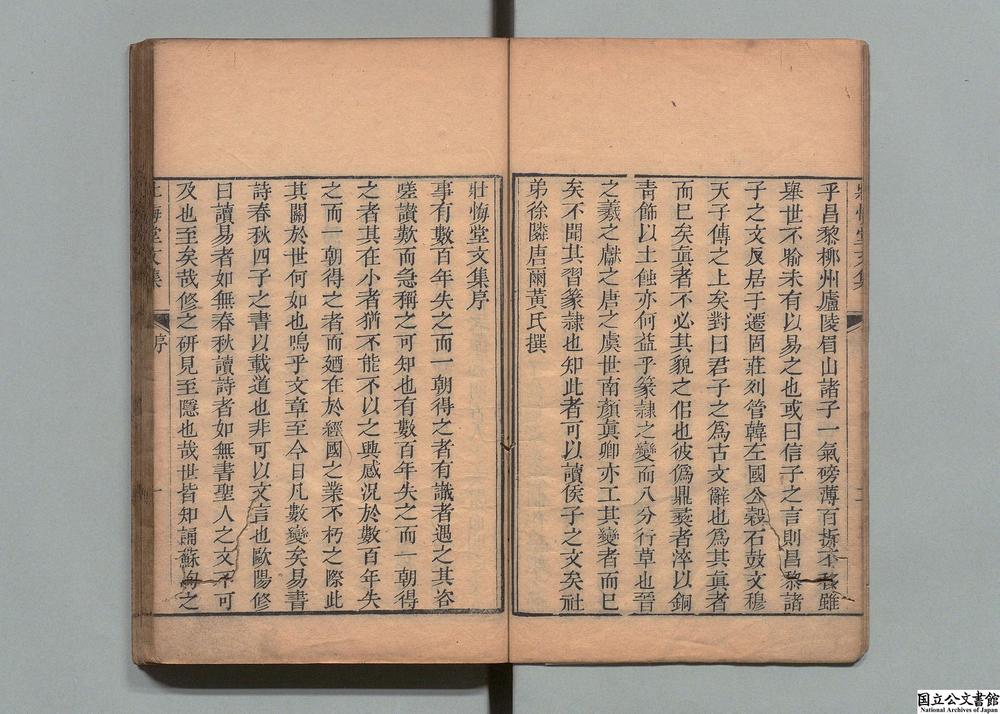 乎昌黎栁州廬陵眉山諸子一氣磅薄百折不移雖
舉世不喻未有以易之也或曰信子之言則昌黎諸
子之文反居于遷固莊列管韓左國公穀石鼓文穆
天子傳之上矣對曰君子之爲古文辭也爲其眞者
而已矣眞者不必其貌之佀也彼僞鼎彞者淬以銅
靑飾以土蝕亦何益乎篆隷之變而八分行草也晉
之羲之獻之唐之虞世南顏眞卿亦工其變者而已
矣不聞其習篆隷也知此者可以讀侯子之文矣社
弟徐隣唐爾黃氏撰
壯悔堂文集序
事有數百年失之而一朝得之者有識者遇之其咨
嗟讚歎而急稱之可知也有數百年失之而一朝得
之者其在小者猶不能不以之興感况於數百年失
之而一朝得之者而廼在於經國之業不朽之際此
其關於世何如也嗚乎文章至今日凡數變矣易書
詩春秋四子之書以載道也非可以文言也歐陽修
曰讀易者如無春秋讀詩者如無書聖人之文不可
及也至矣哉修之研見至隱也哉世皆知誦蘇洵之
壯悔堂文集
序
一